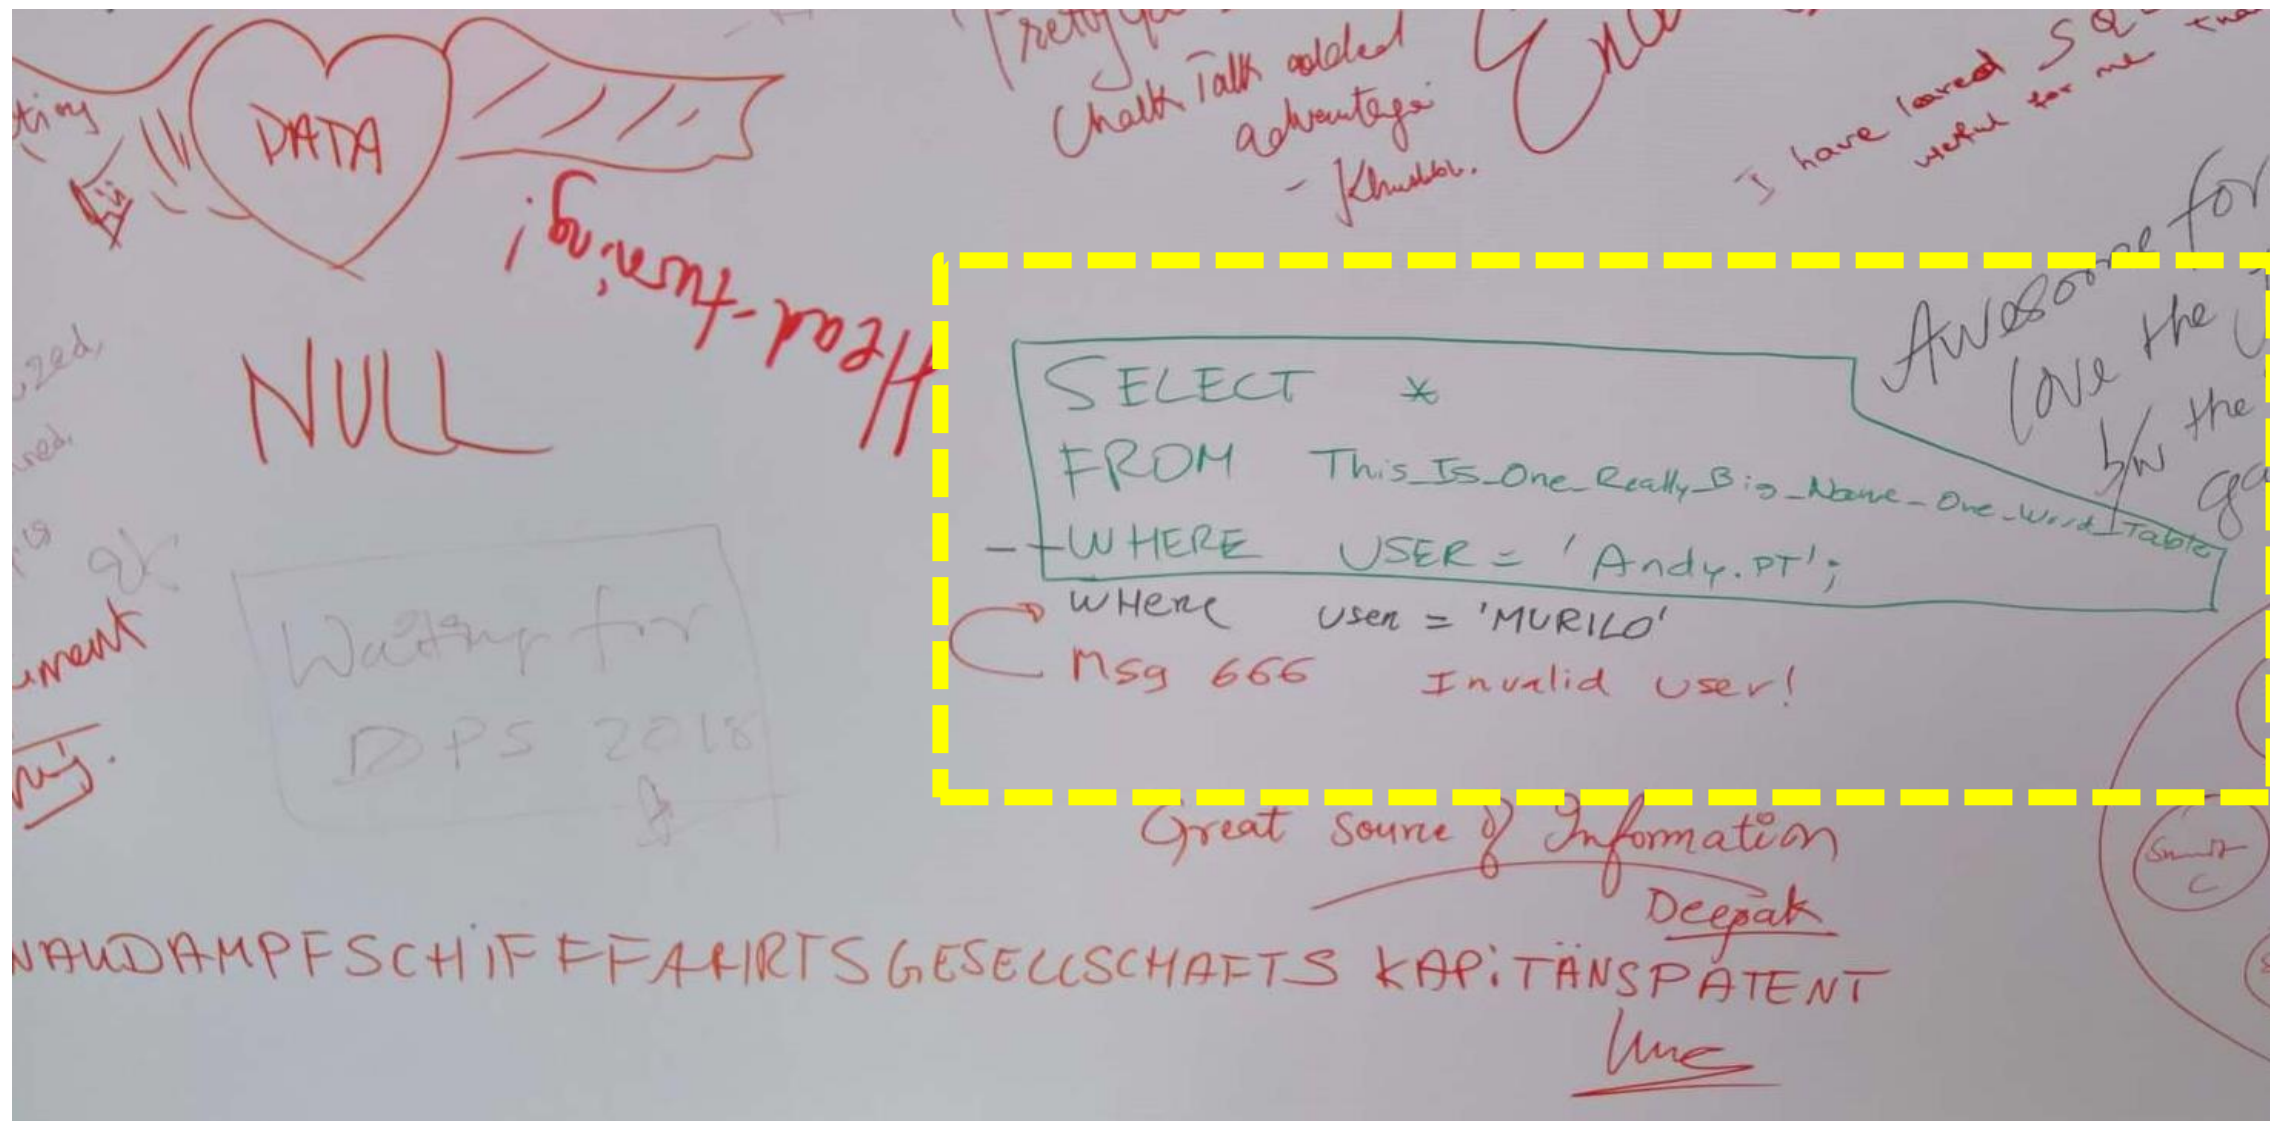 DATA
Chalk Talk added
advantage
- Khushbu.
I have leared SQL
useful for me
Head-turning!
NULL
Awesome for
love the
b/w the
SELECT *
FROM This_Is_One_Really_Big_Name_One_Word_Table
--WHERE USER = 'Andy.PT';
WHere user = 'MURILO'
Msg 666 Invalid user!
Waiting for
DPS 2018
Great source of Information
Deepak
NAUDAMPFSCHiFFFAHRTSGESELLSCHAFTS KAPiTÄNSPATENT